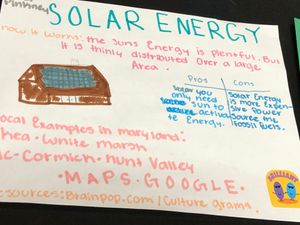 Pinkney
SOLAR ENERGY
now it Works: the suns Energy is plentiful. But
it is thinly distributed over a large
Area.
Pros
Cons
you
only need
sun to
activa
te Energy.
Solar Energy
is more Expen-
sive power
source then
fossil fuels.
ocal Examples in maryland:
hea - White marsh
c-Cormich - Hunt Valley
• MAPS • GOOGLE •
sources: Brainpop.com / Culture grams.
BRILLIANT